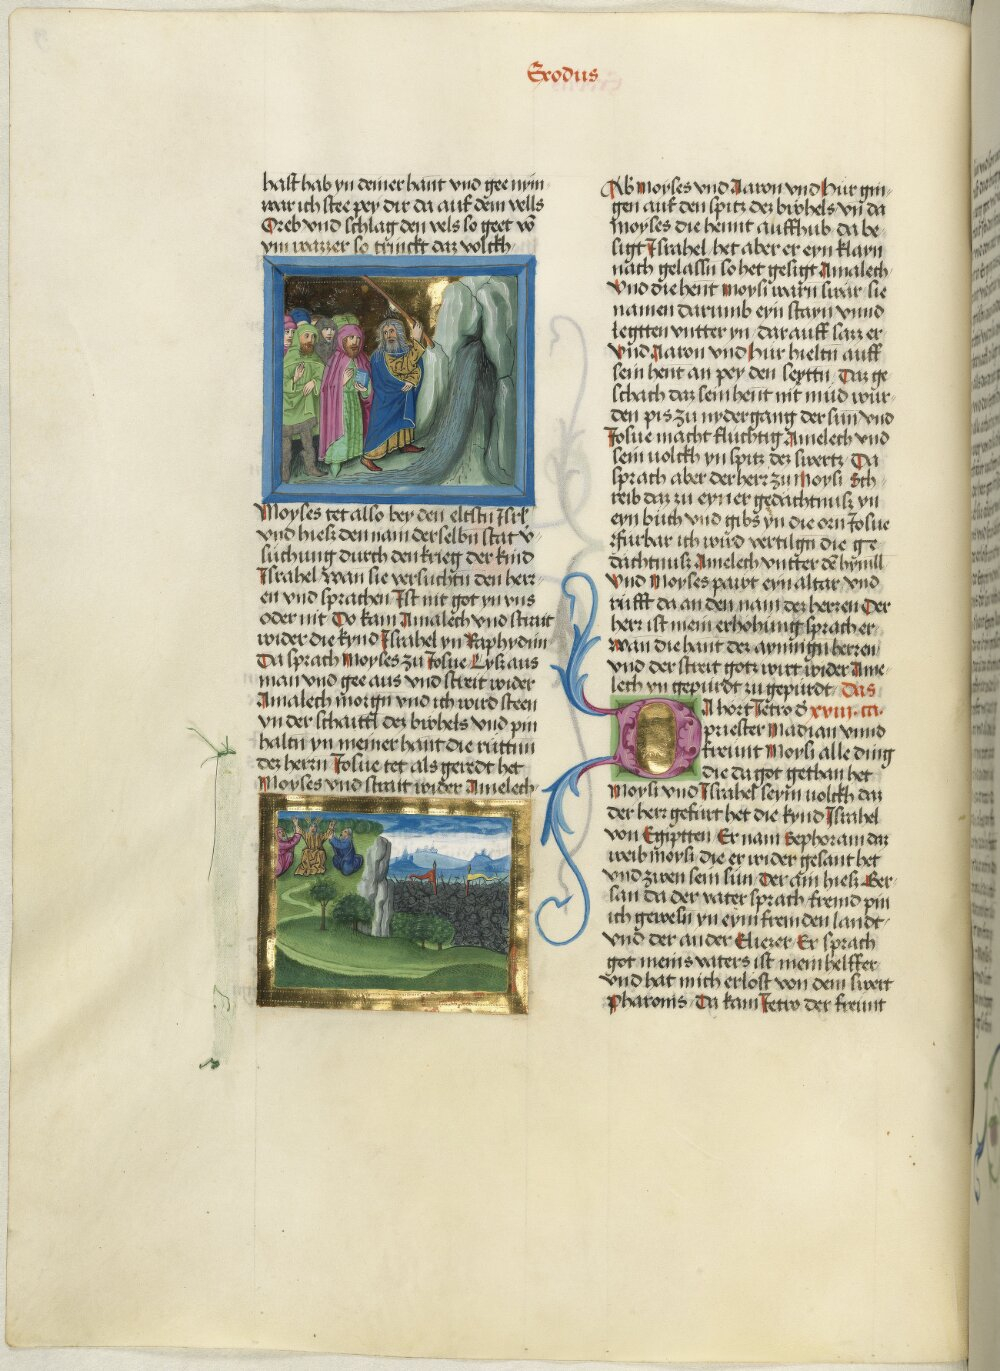 Exodus
hast hab yn deiner hant vnd gee nym
war ich stee pey dir da auf dem vells
Oreb vnd schlag den vels so geet vo
ym wazzer so trinckt daz volckh
Moyses tet also bey den eltstn Isrl
vnd hiesz den nam der selbn stat v̄
suchung durch den krieg der kind
Israhel wan sie versuchtn den herr
en vnd sprachen Ist nit got yn vns
oder nit Do kam Amalech vnd strait
wider die kynd Israhel yn Raphydim
Da sprach Moyses zu Josue Lysz aus
man vnd gee aus vnd streit wider
Amalech morgn vnd ich wird steen
yn der schaittl dez bwhels vnd pin
haltn yn meiner hant die rutten
dez herrn Josue tet als geredt het
Moyses vnd strait wider Amelech
Ab Moyses vnd Aaron vnd Hur gin
gen auf den spitz dez bwhels vn̄ da
moyses die hennt auffhub da be
sigt Israhel het aber er eyn klayn
nach gelassn so het gesigt Amalech
Vnd die hent Moysi warn swar sie
namen darumb eyn stayn vnnd
legtten vntter yn dar auff sazz er
Vnd Aaron vnd Hur hieltn auff
sein hent an pey den seyttn Daz ge
schach daz sein hent nit mud wur
den pis zu nydergang der sun vnd
Josue macht fluchtig Amelech vnd
sein volckh yn spitz dez swertz Da
sprach aber der herr zu Moysi Sch
reib daz zu eyner gedachtnusz yn
eyn buch vnd gibs yn die orn Josue
furbar ich wurd vertilgn die ge
dachtnusz Amelech vntter dē hymll
Vnd Moyses pawt eyn altar vnd
rufft da an den nam dez herren Der
herr ist mein erhohung sprach er
wan die hant dez aynnign herren
vnd der streit gotz wirt wider Ame
lech yn gepurdt zu gepurdt Das
A hort Jetro d̄ xviii ca
priester Madian vnnd
freunt Moysi alle ding
die da got gethan het
Moysi vnd Israhel seym volckh daz
der herr gefurt het die kynd Israhel
von Egiptten Er nam Sephoram daz
weib moysi die er wider gesant het
vnd zwen sein sun Der ain hiesz Ger
san da der vater sprach fremd pin
ich gewesn yn eym fremden landt
vnd der ander Eliezer Er sprach
got meins vaters ist mein helffer
vnd hat mich erlost von dem swert
Pharonis Da kam Jetro der freunt